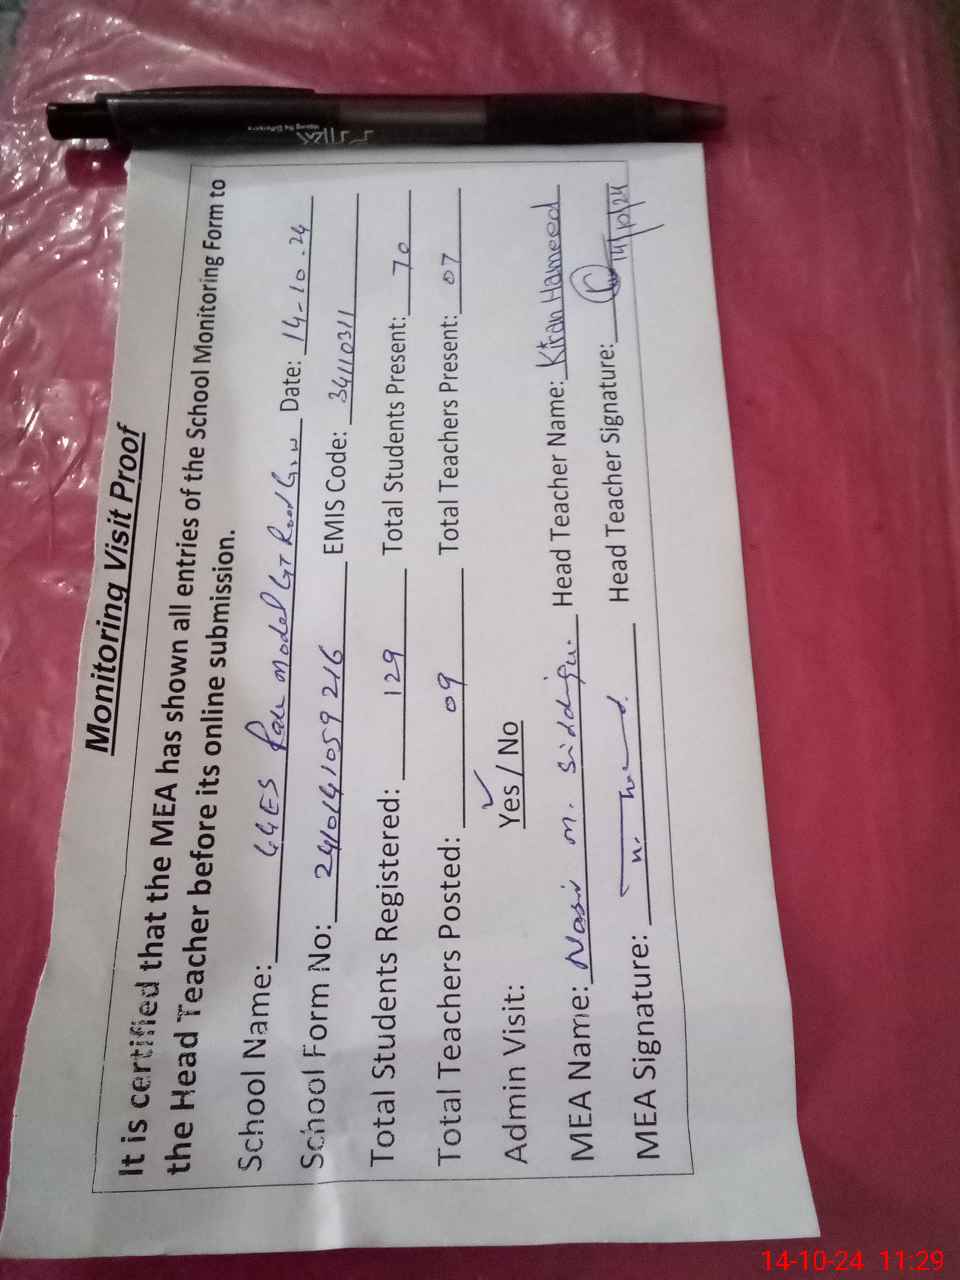 Monitoring Visit Proof
It is certified that the MEA has shown all entries of the School Monitoring Form to
the Head Teacher before its online submission.
School Name: GGES Model GT Road Grw Date: 14-10-24
School Form No: 2410141059216 EMIS Code: 34110311
Total Students Registered: 129 Total Students Present: 70
Total Teachers Posted: 09 Total Teachers Present: 07
Admin Visit: Yes / No
MEA Name: Nasir M. Head Teacher Name: Kiran Hameed
MEA Signature: Head Teacher Signature: 14/10/24
14-10-24 11:29